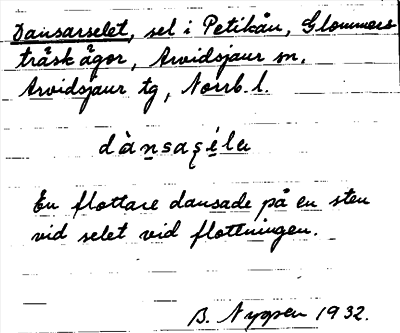 Dansarselet, sel i Petikån, Glommers
träsk ägor, Arvidsjaur sn.
Arvidsjaur tg, Norrb. l.
En flottare dansade på en sten
vid selet vid flottningen.
B. Nygren 1932.